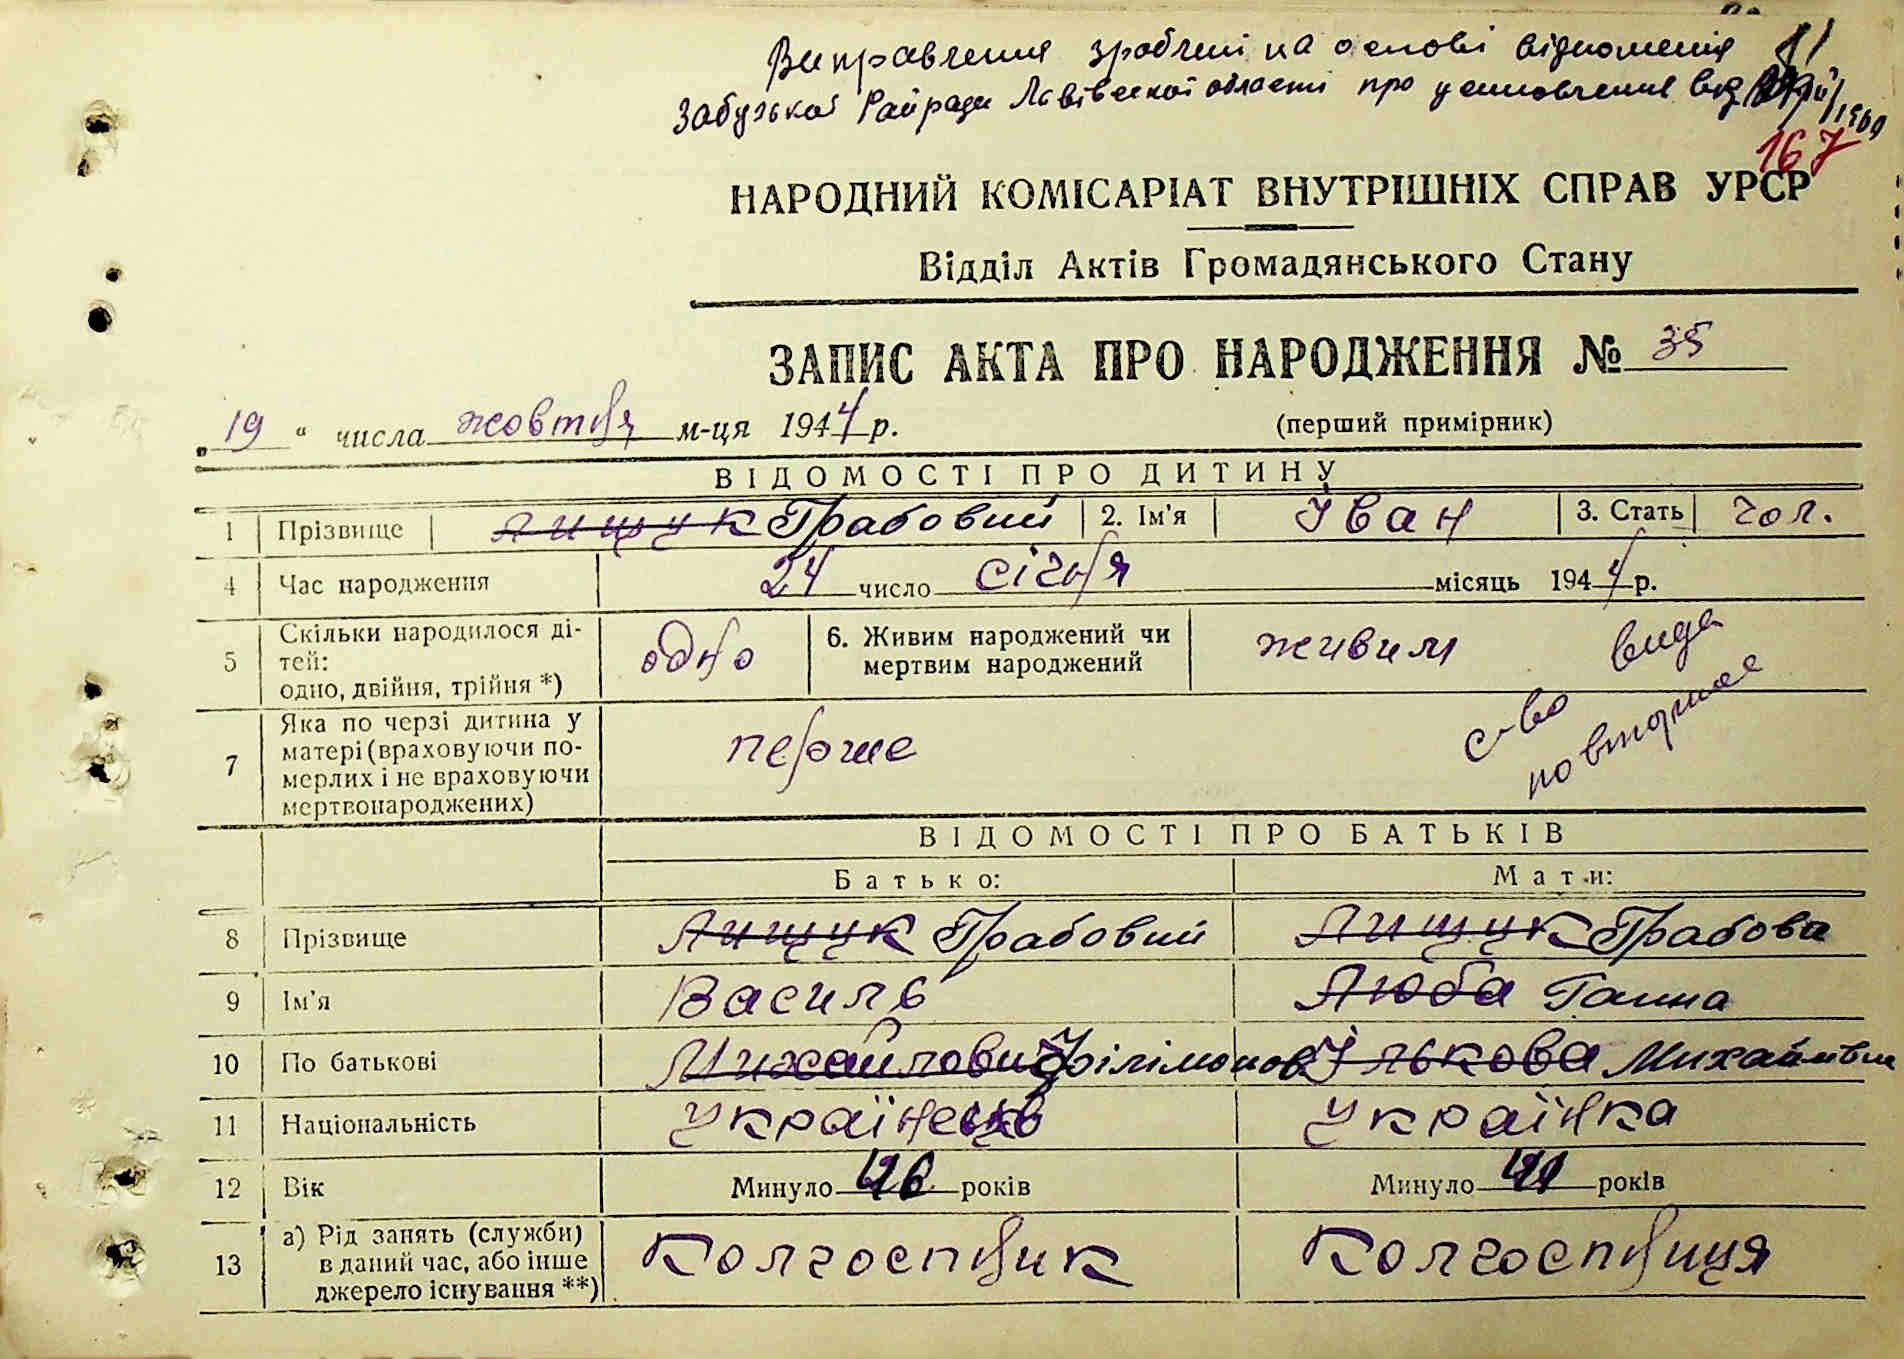 Виправлення зроблені на основі відношення
Забузької Райради Львівської області про усиновлення від 1960
167
НАРОДНИЙ КОМІСАРІАТ ВНУТРІШНІХ СПРАВ УРСР
Відділ Актів Громадянського Стану
ЗАПИС АКТА ПРО НАРОДЖЕННЯ № 35
„19“ числа жовтня м-ця 1944 р. (перший примірник)
ВІДОМОСТІ ПРО ДИТИНУ
1 Прізвище Лищук Грабовий 2. Ім'я Іван 3. Стать чол.
4 Час народження 24 число січня місяць 1944 р.
5 Скільки народилося ді-
тей:
одно, двійня, трійня *) одно 6. Живим народжений чи
мертвим народжений живим
с-во вида
повторное
7 Яка по черзі дитина у
матері (враховуючи по-
мерлих і не враховуючи
мертвонароджених) перше
ВІДОМОСТІ ПРО БАТЬКІВ
Батько: Мати:
8 Прізвище Лищук Грабовий Лищук Грабова
9 Ім'я Василь Люба Ганна
10 По батькові Михайлович Філімонов Ількова Михайлівна
11 Національність Українець Українка
12 Вік Минуло років Минуло років
13 а) Рід занять (служби)
в даний час, або інше
джерело існування **) Колгоспник Колгоспниця